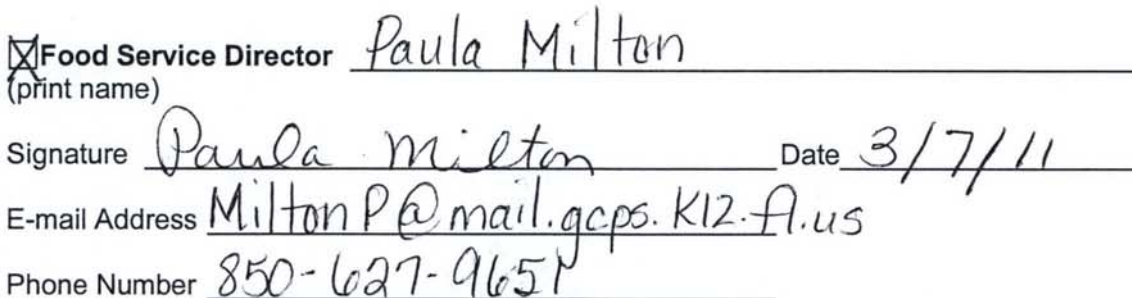 ☒Food Service Director Paula Milton
(print name)
Signature Paula Milton Date 3/7/11
E-mail Address MiltonP@mail.gcps.K12.fl.us
Phone Number 850-627-9651